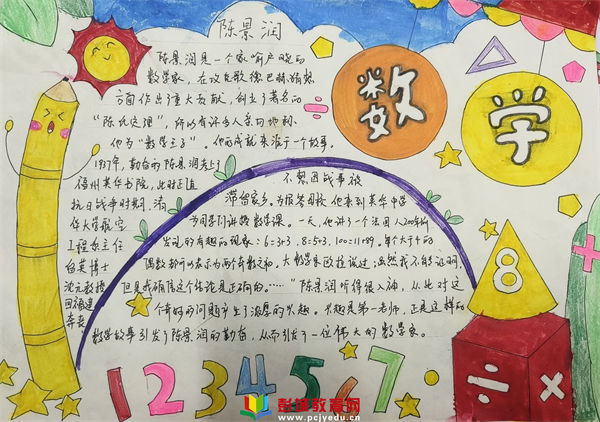 陈景润
陈景润是一个家喻户晓的
数学家,在攻克歌德巴赫猜想
方面作出了重大贡献,创立了著名的
“陈氏定理”,所以有许多人亲切地称
他为“数学王子”。他的成就来源于一个故事。
1937年,勤奋的陈景润考上了
福州英华书院,此时正值
抗日战争时期,清
华大学航空
工程系主任
留英博士
沈元教授
回福建
奔丧
不想因战事被
滞留家乡。为报答母校,他来到英华中学
为同学们讲授数学课。一天,他讲了一个法国人200年前
发现的有趣的现象:6=3+3,8=5+3,100=11+89。每个大于4的
偶数都可以表示为两个奇数之和。大数学家欧拉说过:虽然我不能证明,
但是我确信这个结论是正确的……”陈景润听得很入神,从此对这
个奇妙的问题产生了浓厚的兴趣。兴趣是第一老师,正是这样的
数学故事引发了陈景润的勤奋,从而引发了一位伟大的数学家。
数
学
8
÷
×
+
1 2 3 4 5 6 7
彭城教育网
www.pcjyedu.cn